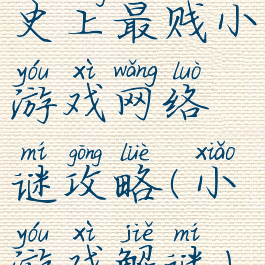 史上最贱小
yóu xì wǎng luò
游戏网络
mí gōng lüè xiǎo
谜攻略(小
yóu xì jiě mí
游戏解谜)